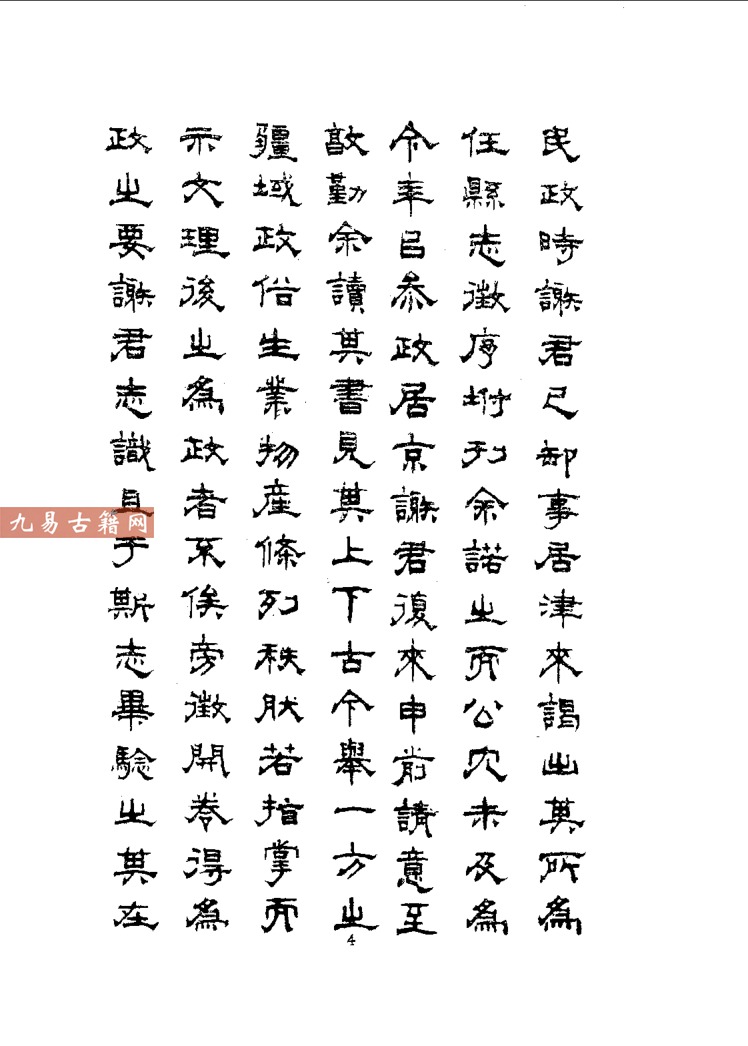 民政時謝君已卸事居津來謁出其所為
任縣志徵序坿列余諾之而公冗未及為
今年㠯參政居京謝君復來申前請意至
敦勤余讀其書見其上下古今舉一方之
疆域政俗生業物產條列秩然若指掌而
示文理後之為政者不俟旁徵開卷得為
政之要謝君志識且于斯志畢驗之其在
4
九易古籍网